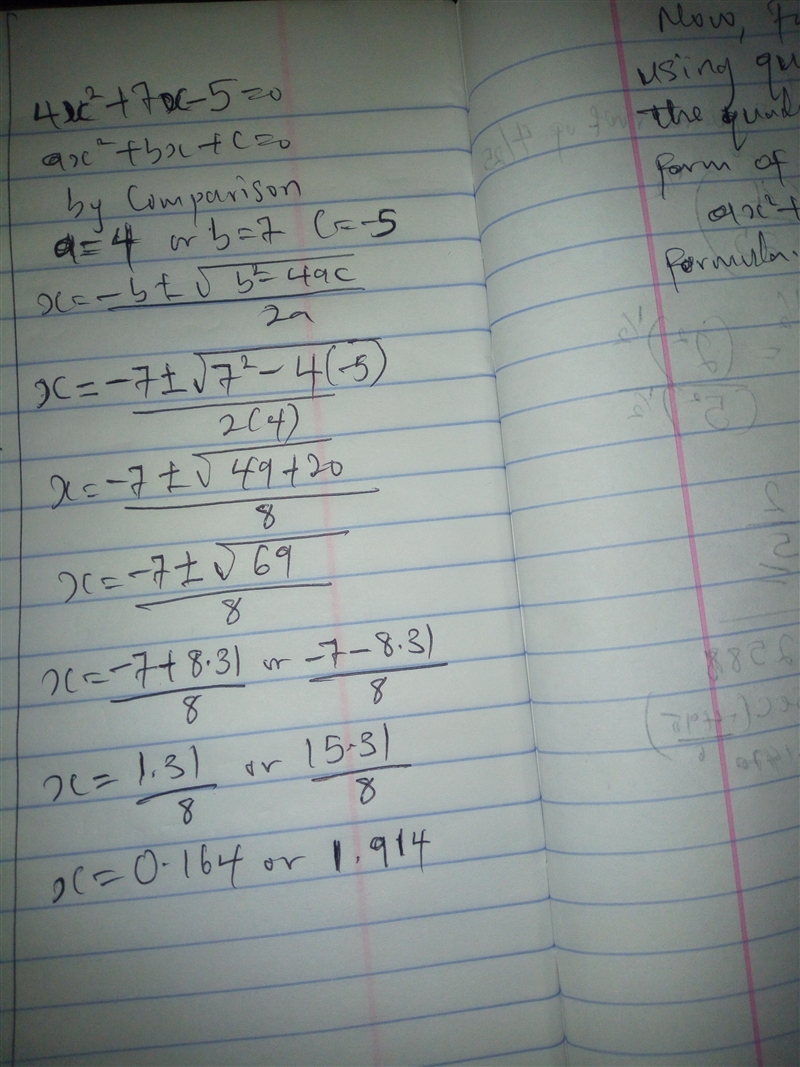 4x²+7x-5=0
ax²+bx+c=0
by Comparison
a=4 or b=7 c=-5
x=-b±√b²-4ac
2a
x=-7±√7²-4(-5)
2(4)
x=-7±√49+20
8
x=-7±√69
8
x=-7+8.31 or -7-8.31
8 8
x=1.31 or 15.31
8 8
x=0.164 or 1.914
Now,
using
the
form of
ax²+
formula.